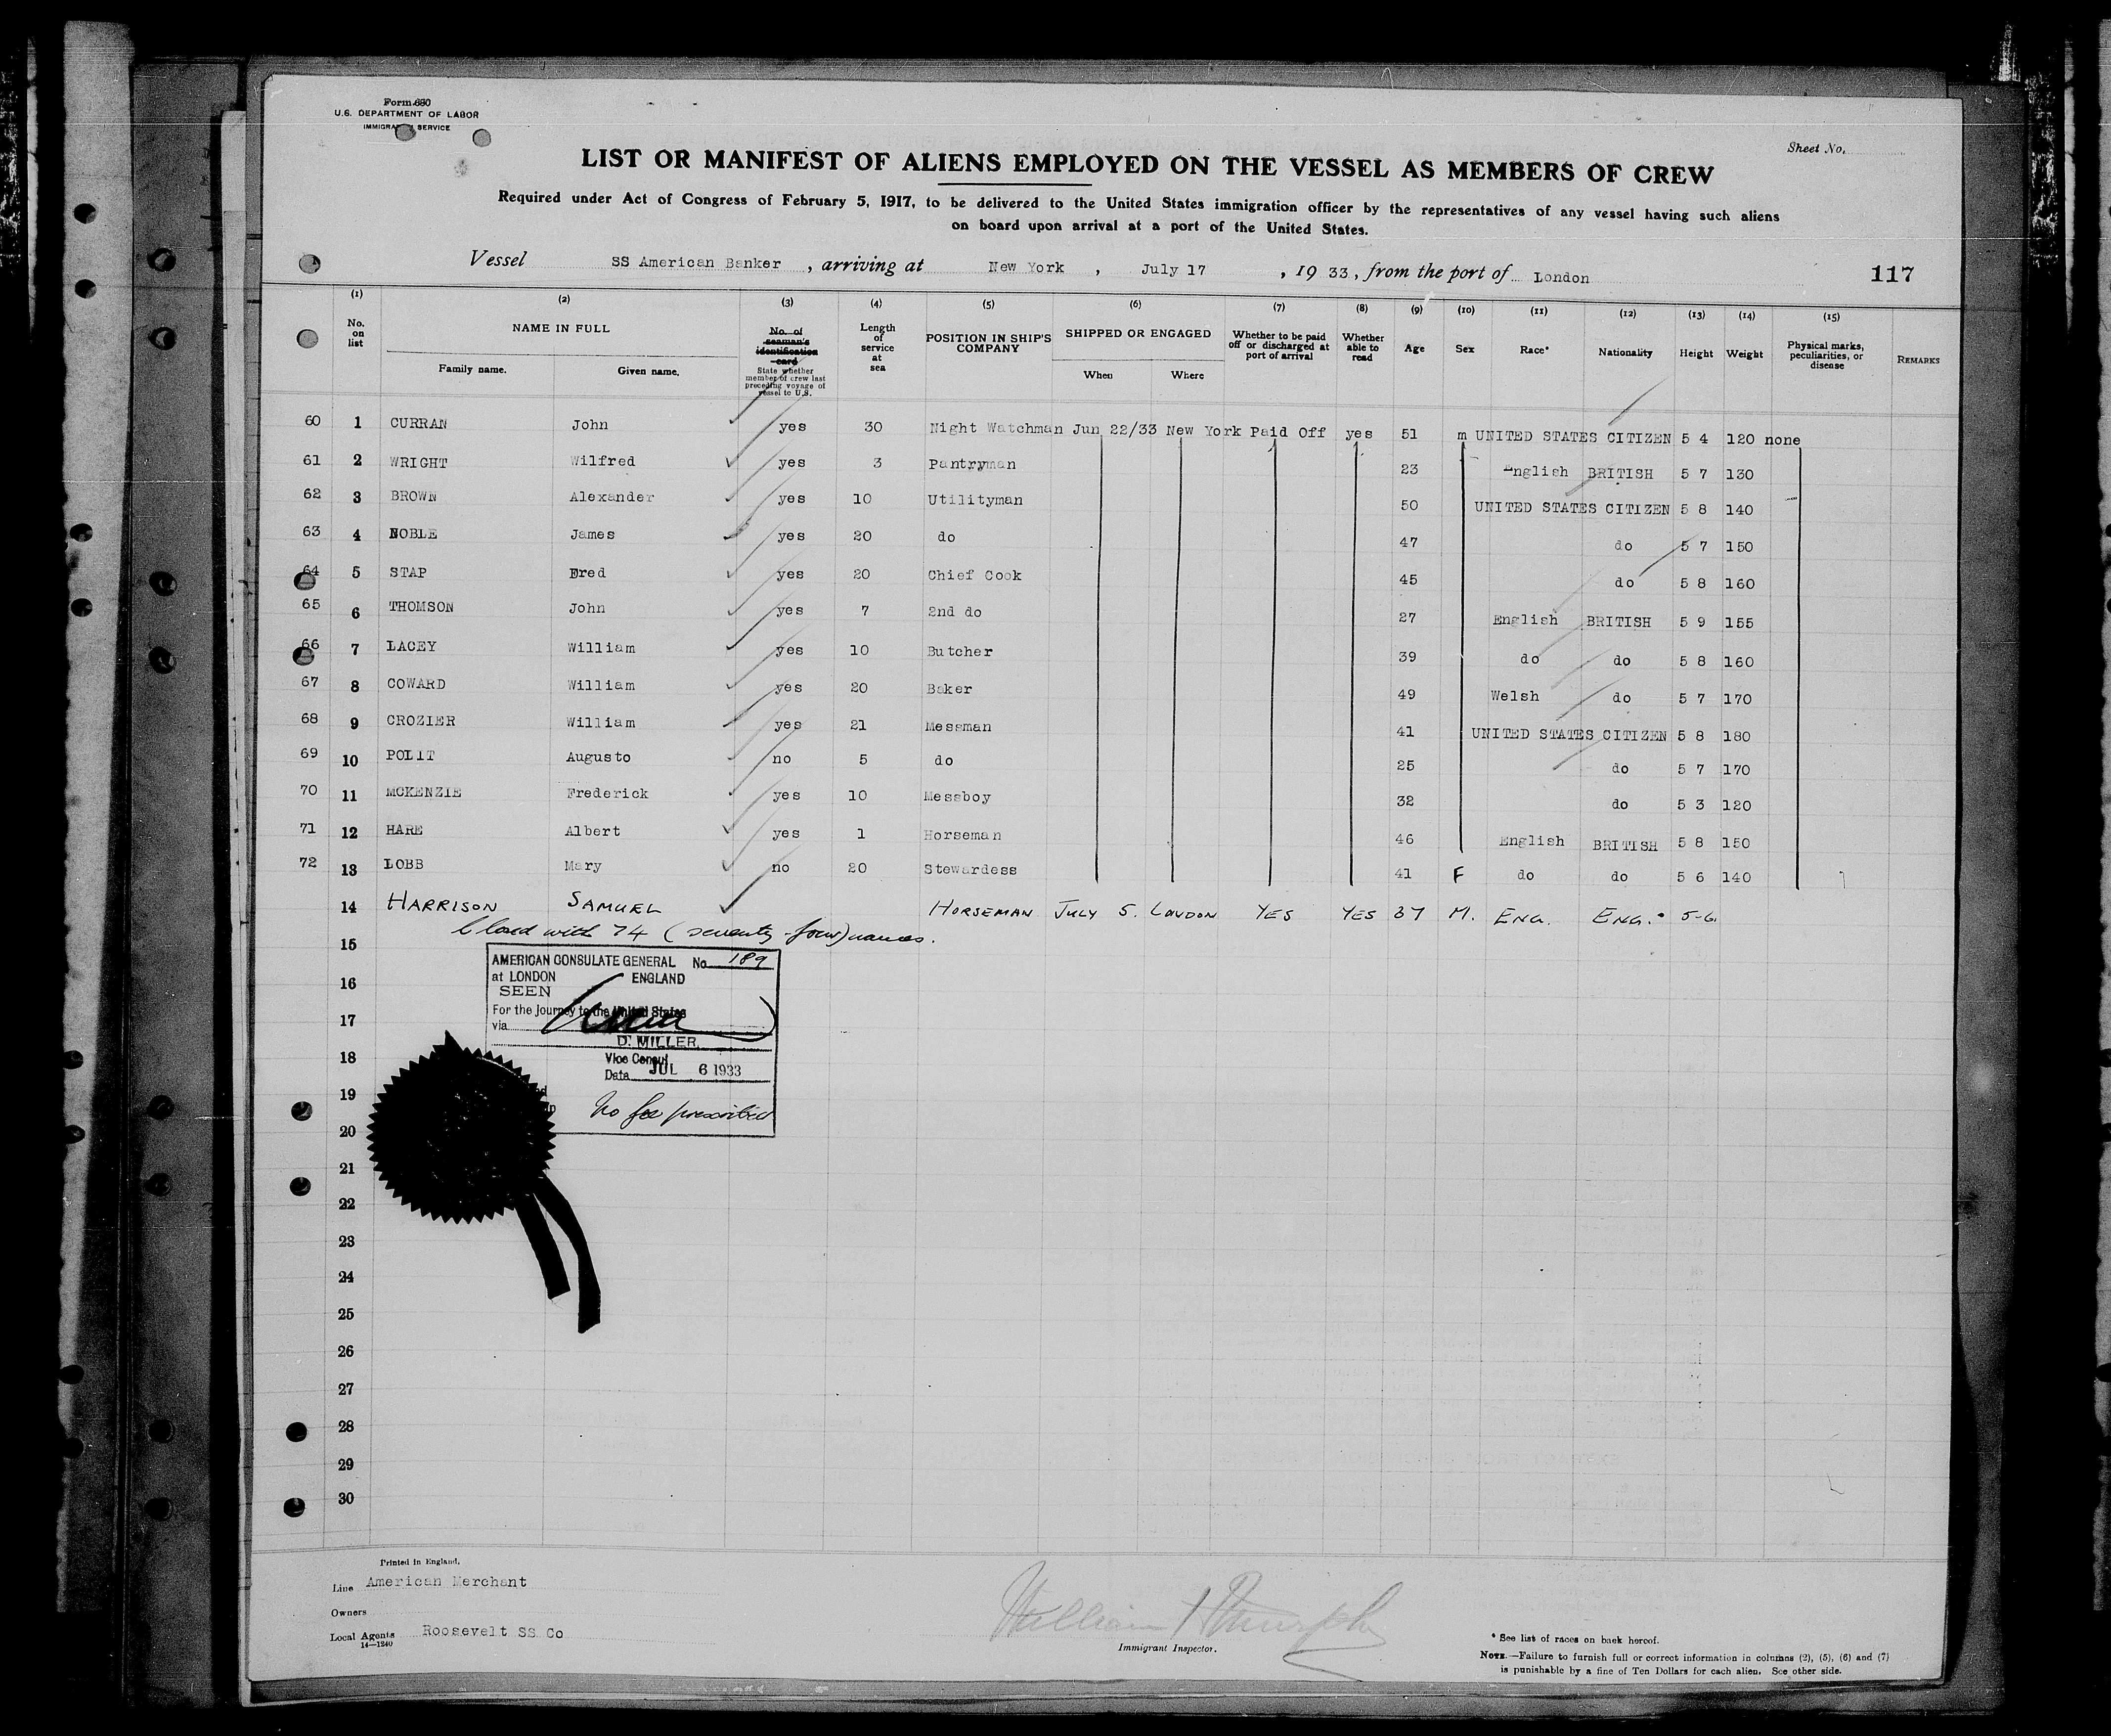 Form 680
U.S. DEPARTMENT OF LABOR
IMMIGRATION SERVICE
Sheet No.
LIST OR MANIFEST OF ALIENS EMPLOYED ON THE VESSEL AS MEMBERS OF CREW
Required under Act of Congress of February 5, 1917, to be delivered to the United States immigration officer by the representatives of any vessel having such aliens
on board upon arrival at a port of the United States.
Vessel SS American Banker, arriving at New York, July 17, 1933, from the port of London
117
(1) (2) (3) (4) (5) (6) (7) (8) (9) (10) (11) (12) (13) (14) (15)
No. on list
NAME IN FULL
Family name. Given name.
No. of seaman's identification card
State whether member of crew last preceding voyage of vessel to U.S.
Length of service at sea
POSITION IN SHIP'S COMPANY
SHIPPED OR ENGAGED
When Where
Whether to be paid off or discharged at port of arrival
Whether able to read
Age
Sex
Race*
Nationality
Height
Weight
Physical marks, peculiarities, or disease
REMARKS
60 1 CURRAN John yes 30 Night Watchman Jun 22/33 New York Paid Off yes 51 m UNITED STATES CITIZEN 5 4 120 none
61 2 WRIGHT Wilfred yes 3 Pantryman 23 English BRITISH 5 7 130
62 3 BROWN Alexander yes 10 Utilityman 50 UNITED STATES CITIZEN 5 8 140
63 4 NOBLE James yes 20 do 47 do 5 7 150
64 5 STAP Fred yes 20 Chief Cook 45 do 5 8 160
65 6 THOMSON John yes 7 2nd do 27 English BRITISH 5 9 155
66 7 LACEY William yes 10 Butcher 39 do do 5 8 160
67 8 COWARD William yes 20 Baker 49 Welsh do 5 7 170
68 9 CROZIER William yes 21 Messman 41 UNITED STATES CITIZEN 5 8 180
69 10 POLIT Augusto no 5 do 25 do 5 7 170
70 11 MCKENZIE Frederick yes 10 Messboy 32 do 5 3 120
71 12 HARE Albert yes 1 Horseman 46 English BRITISH 5 8 150
72 13 LOBB Mary no 20 Stewardess 41 F do do 5 6 140
14 HARRISON SAMUEL HORSEMAN JULY 5. LONDON YES YES 37 M. ENG. ENG. 5-6.
Closed with 74 (seventy-four) names.
15
AMERICAN CONSULATE GENERAL No. 189
at LONDON ENGLAND
16
SEEN
For the journey to the United States
17
via
D. MILLER
18
Vice Consul
Date JUL 6 1933
19
No fee prescribed
20
21
22
23
24
25
26
27
28
29
30
Printed in England.
Line American Merchant
Owners
Local Agents Roosevelt SS Co
14—1240
Immigrant Inspector.
* See list of races on back hereof.
NOTE.—Failure to furnish full or correct information in columns (2), (5), (6) and (7)
is punishable by a fine of Ten Dollars for each alien. See other side.